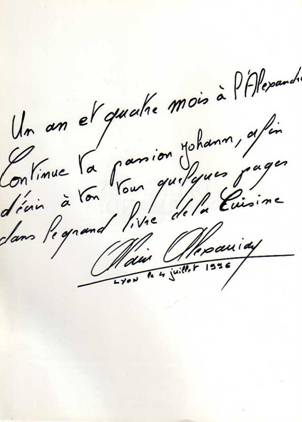 Un an et quatre mois à l'Alexandr
Continue ta passion Johann, afin
d'écrir à ton tour quelques pages
dans le grand livre de la Cuisine
Alain Alexanian
LYON le 4 juillet 1996